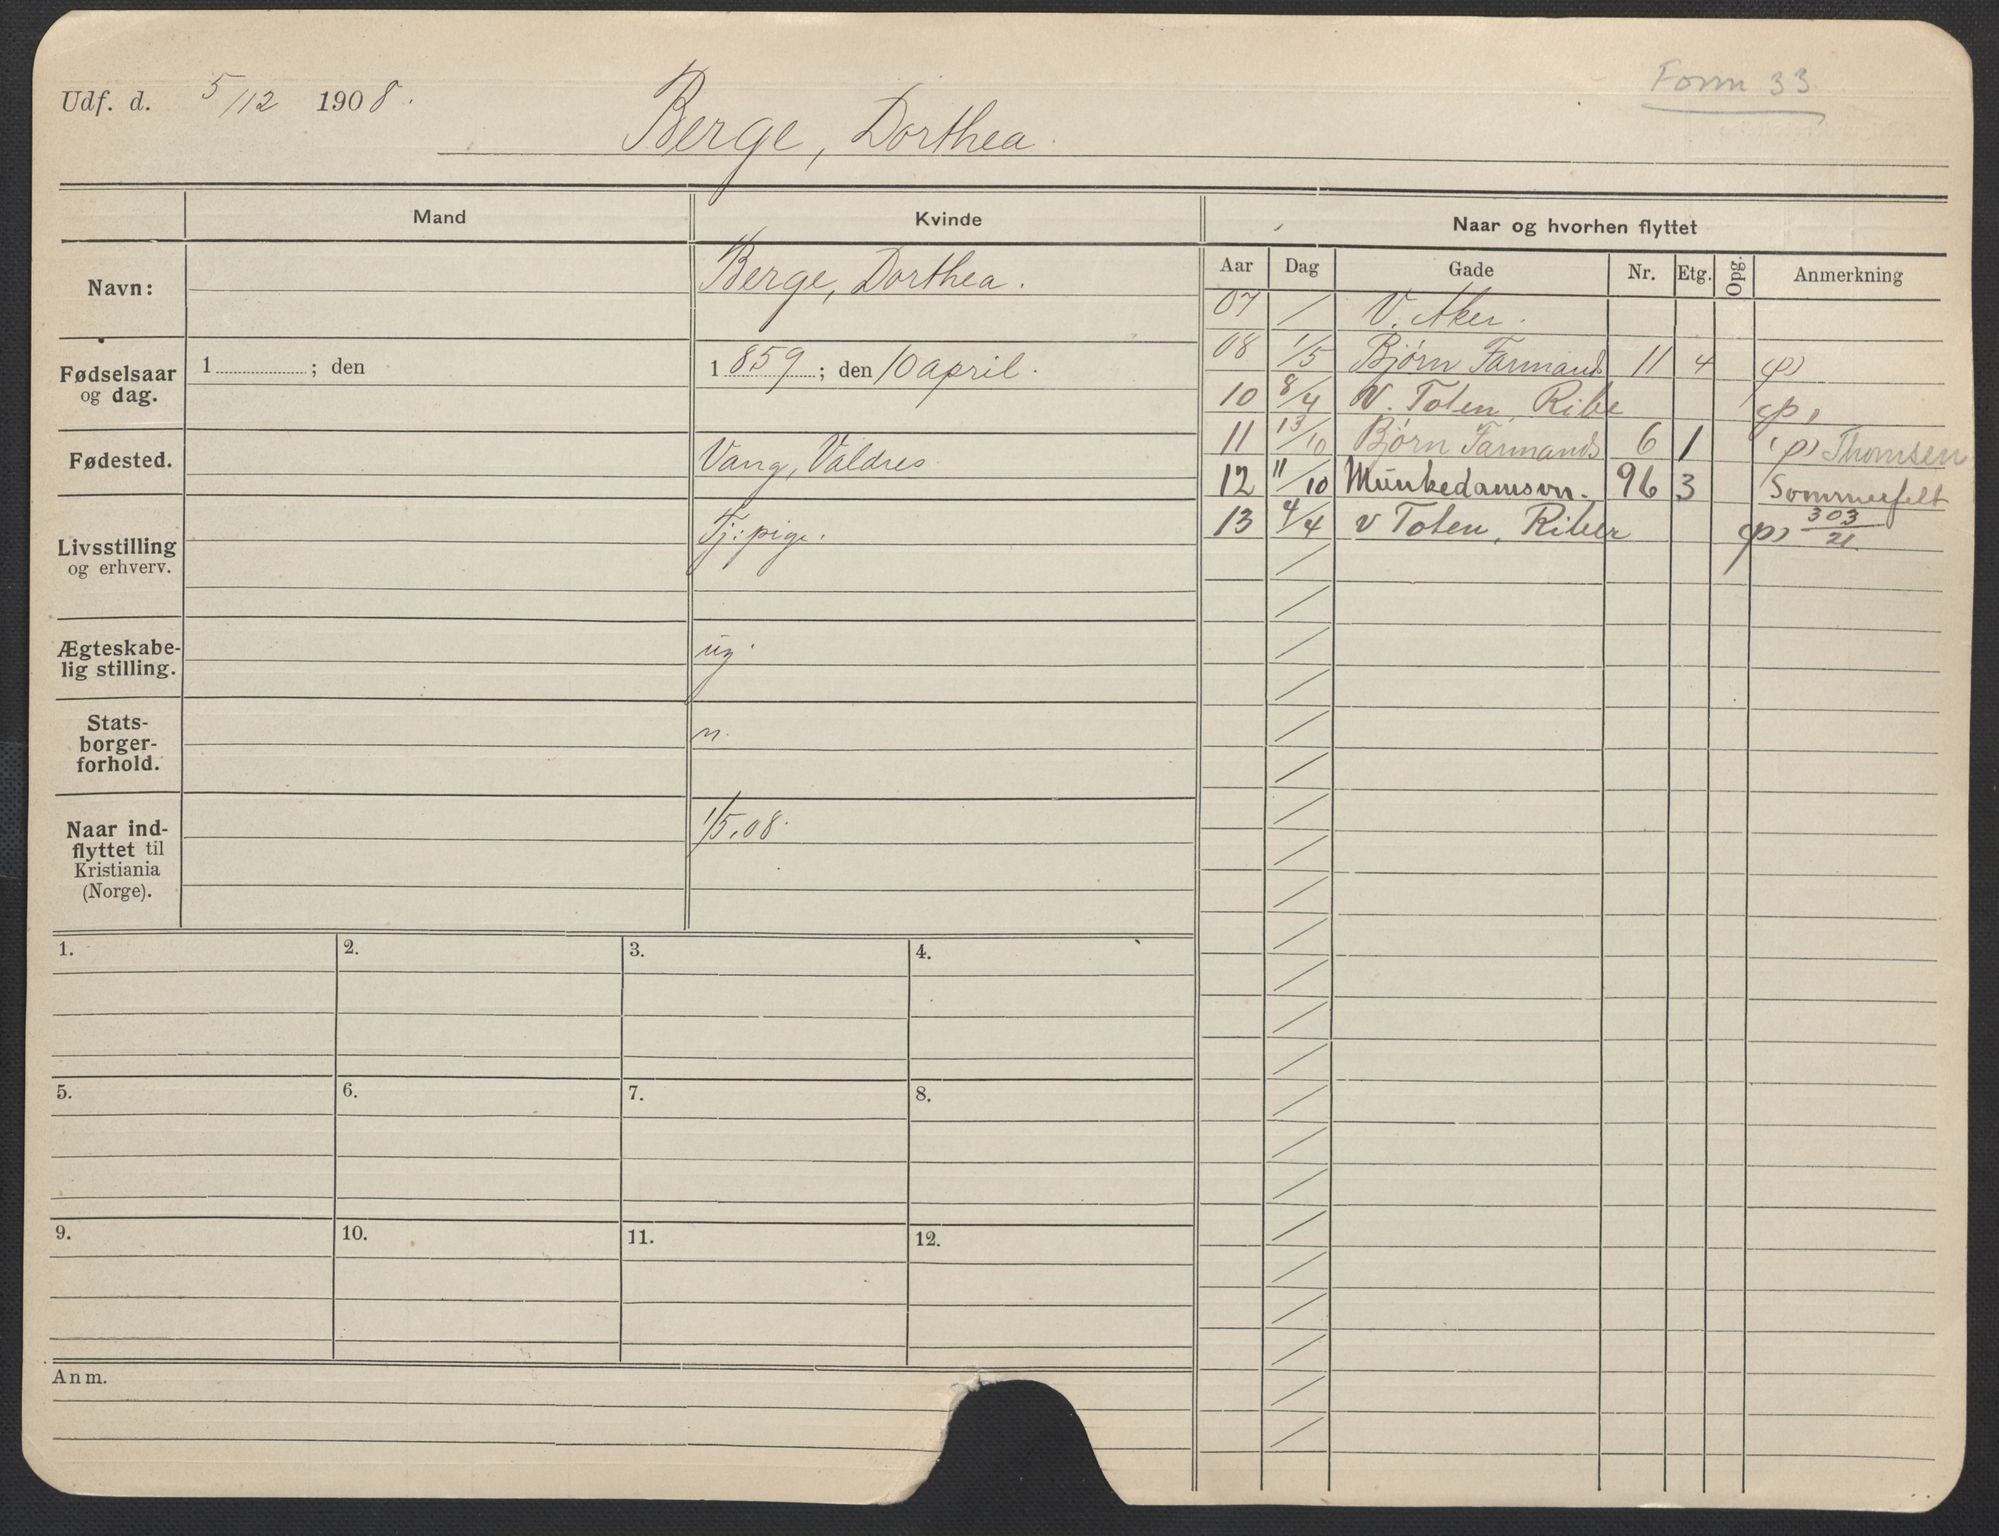 Form 33
Udf. d. 5/12 1908.
Berge, Dorthea.
Mand Kvinde Naar og hvorhen flyttet
Aar Dag Gade Nr. Etg. Opg. Anmerkning
Navn: Berge, Dorthea.
Fødselsaar og dag. 1 ; den 1859 ; den 10 april.
Fødested. Vang, Valdres
Livsstilling og erhverv. Tj: pige.
Ægteskabe- lig stilling. ug.
Stats- borger- forhold. n.
Naar ind- flyttet til Kristiania (Norge). 1/5.08.
07 / V. Aker.
08 1/5 Bjørn Farmands 11 4
10 8/4 V. Toten, Ribe
11 13/10 Bjørn Farmands 6 1 Thomsen
12 11/10 Munkedamsvn. 96 3 Sommerfelt
13 4/4 v Toten, Riber 303/21
1. 2. 3. 4.
5. 6. 7. 8.
9. 10. 11. 12.
Anm.